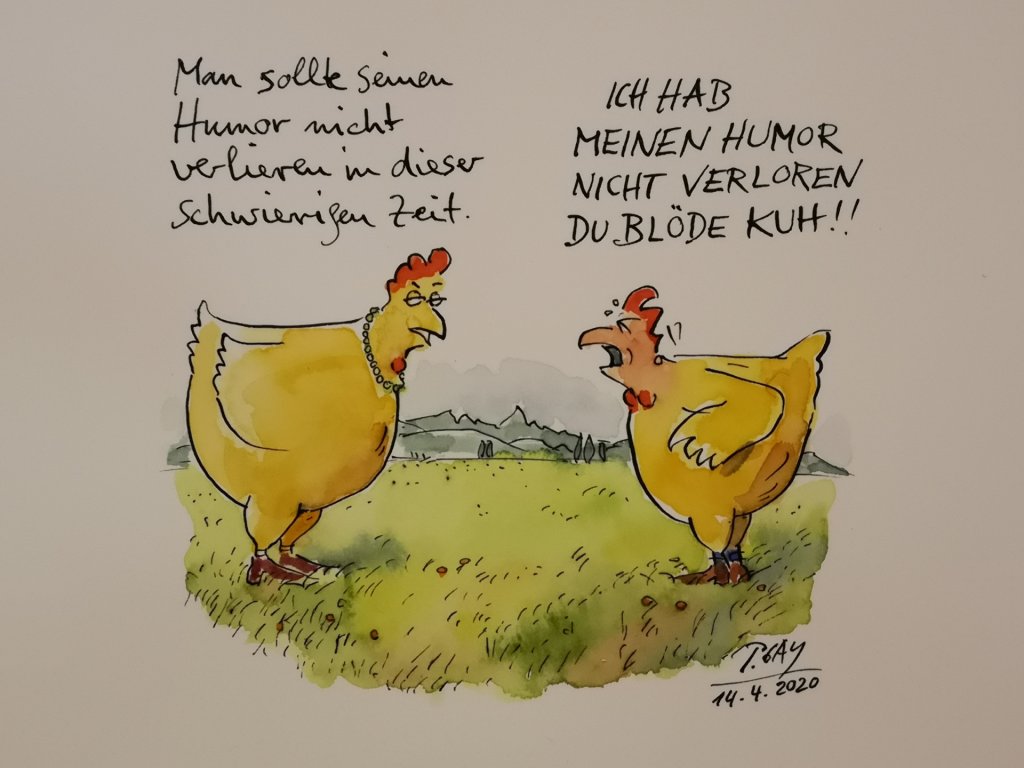 Man sollte seinen
Humor nicht
verlieren in dieser
schwierigen Zeit.
ICH HAB
MEINEN HUMOR
NICHT VERLOREN
DU BLÖDE KUH!!
P. GAY
14.4.2020